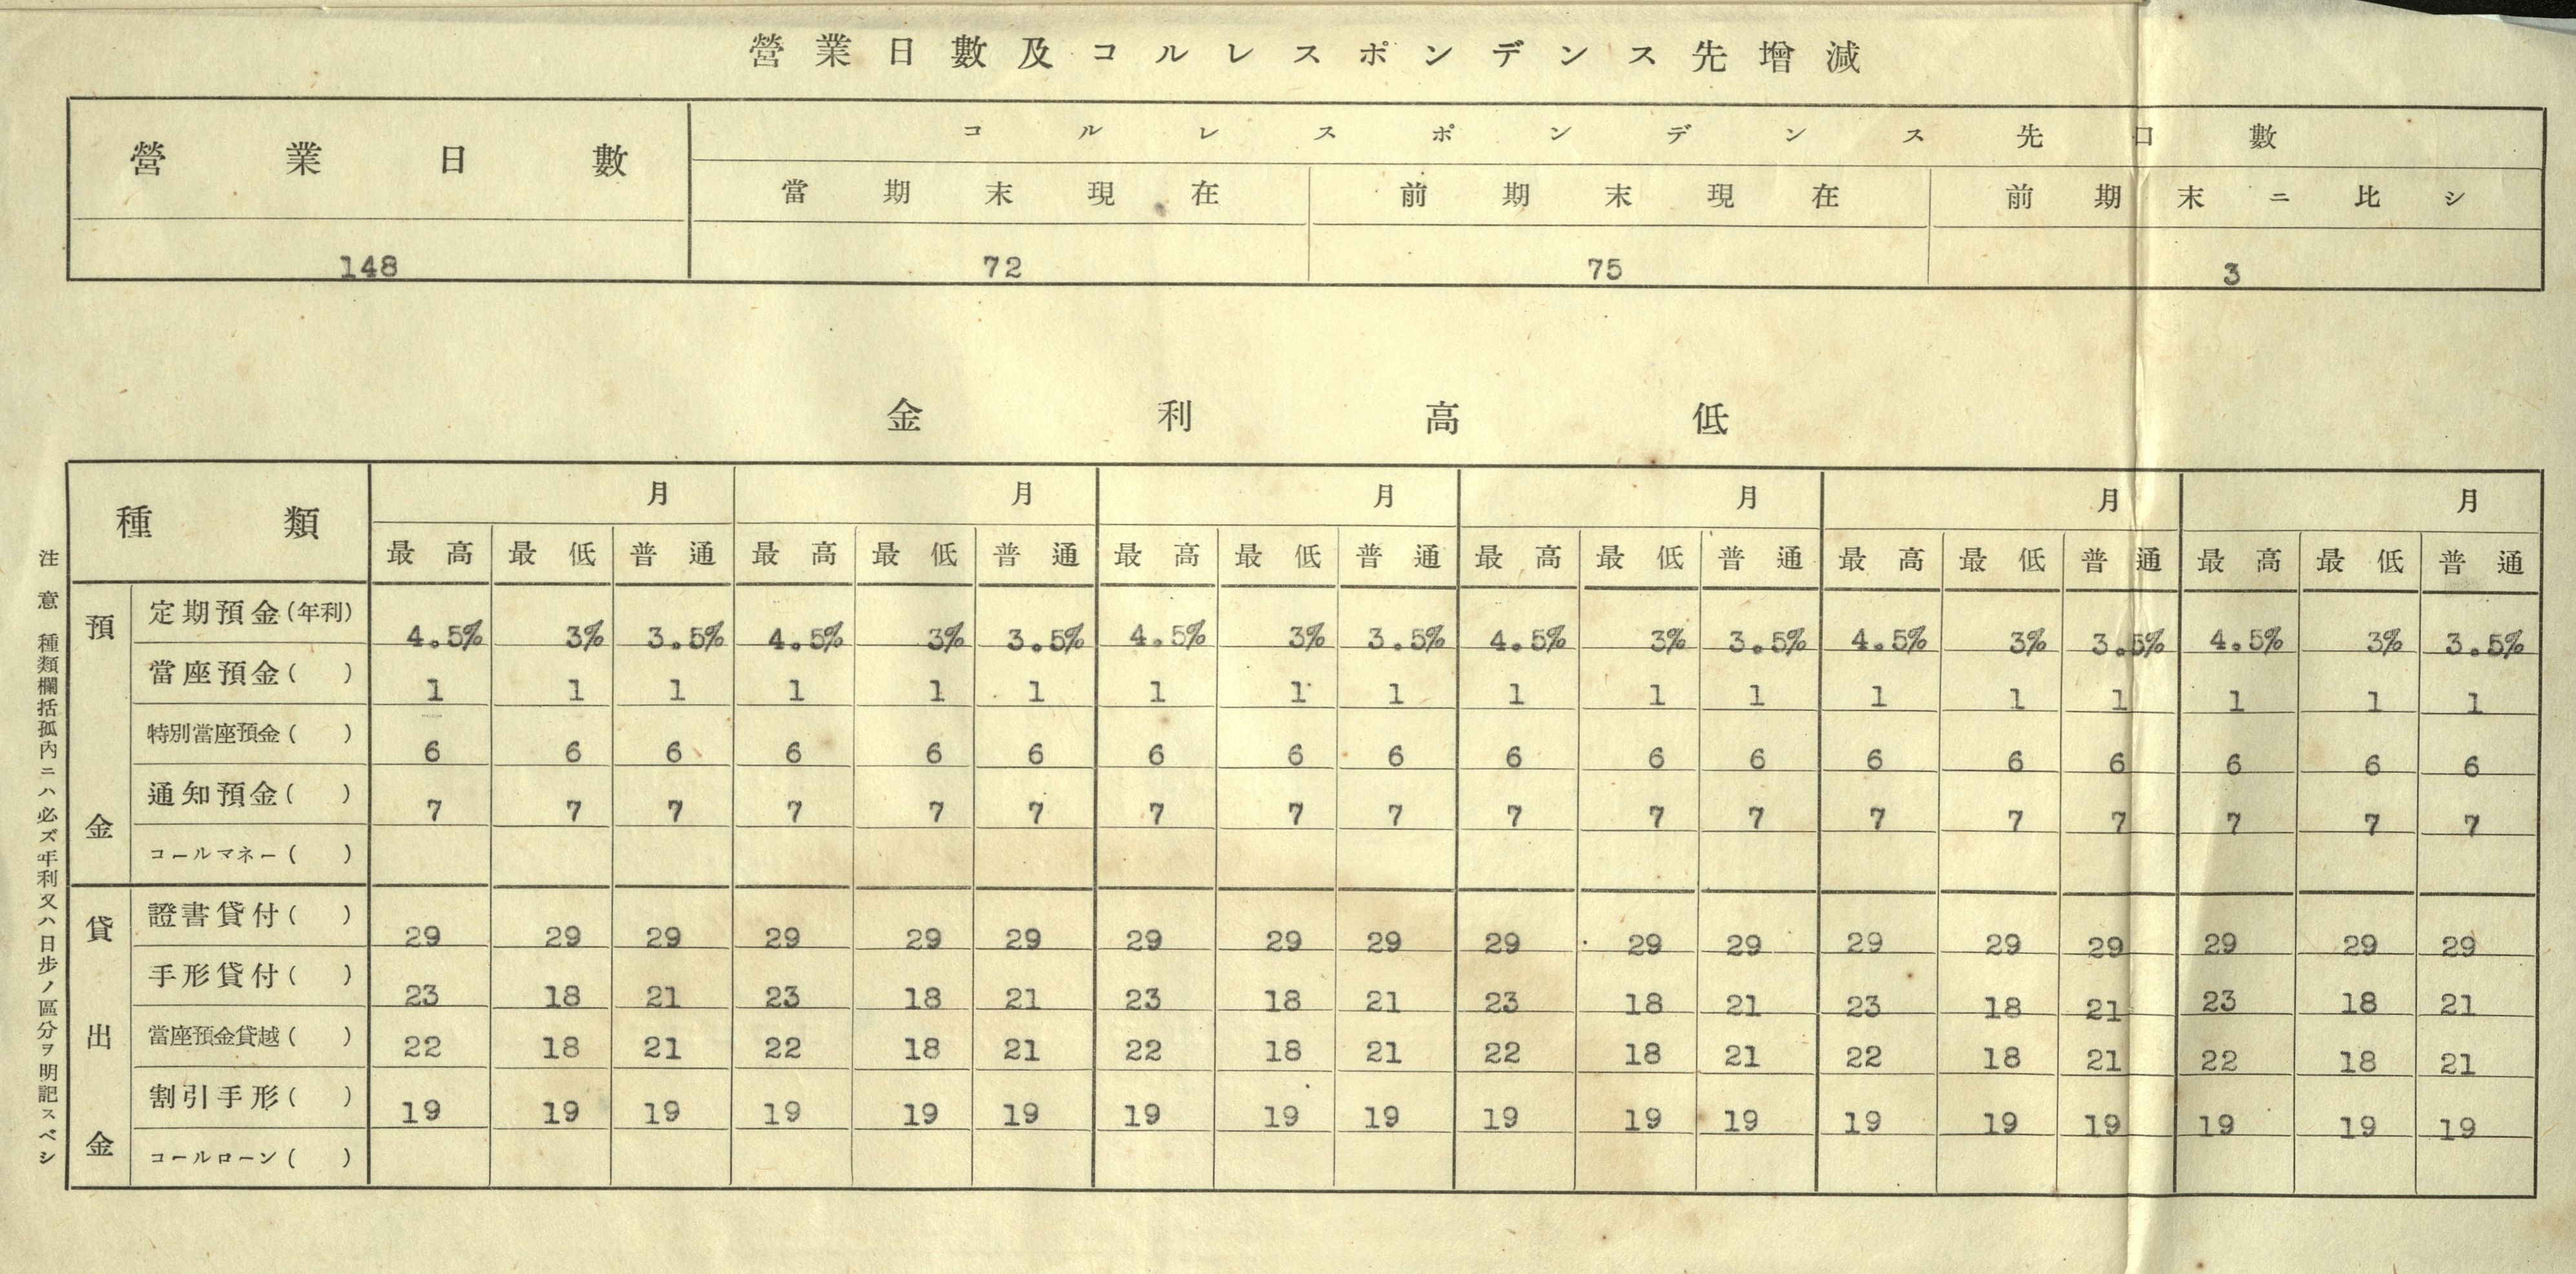 營業日數及コルレスポンデンス先增減
營業日數 コルレスポンデンス先口數
當期末現在 前期末現在 前期末ニ比シ
148 72 75 3
金利高低
種類 月 月 月 月 月 月
最高 最低 普通 最高 最低 普通 最高 最低 普通 最高 最低 普通 最高 最低 普通 最高 最低 普通
預金
定期預金(年利) 4.5% 3% 3.5% 4.5% 3% 3.5% 4.5% 3% 3.5% 4.5% 3% 3.5% 4.5% 3% 3.5% 4.5% 3% 3.5%
當座預金( ) 1 1 1 1 1 1 1 1 1 1 1 1 1 1 1 1 1 1
特別當座預金( ) 6 6 6 6 6 6 6 6 6 6 6 6 6 6 6 6 6 6
通知預金( ) 7 7 7 7 7 7 7 7 7 7 7 7 7 7 7 7 7 7
コールマネー( )
貸出金
證書貸付( ) 29 29 29 29 29 29 29 29 29 29 29 29 29 29 29 29 29 29
手形貸付( ) 23 18 21 23 18 21 23 18 21 23 18 21 23 18 21 23 18 21
當座預金貸越( ) 22 18 21 22 18 21 22 18 21 22 18 21 22 18 21 22 18 21
割引手形( ) 19 19 19 19 19 19 19 19 19 19 19 19 19 19 19 19 19 19
コールローン( )
注意 種類欄括孤內ニハ必ズ年利又ハ日步ノ區分ヲ明記スベシ